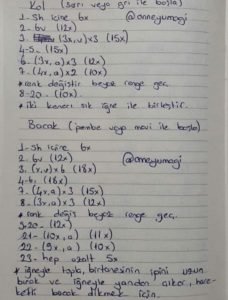 Kol (sarı veya gri ile başla)
1- Sh içine 6x
2- 6v (12x)
@anneyumagi
3- (3x,v)x3 (15x)
4-5- (15x)
6- (3x,a)x3 (12x)
7- (4x,a)x2 (10x)
* renk değiştir beyaz renge geç.
8-20- (10x).
* iki kenarı sık iğne ile birleştir.
Bacak (pembe veya mavi ile başla)
1- Sh içine 6x
2- 6v (12x)
@anneyumagi
3- (x,v)x6 (18x)
4-6- (18x)
7- (4x,a)x3 (15x)
8- (3x,a)x3 (12x)
* renk değiş beyaz renge geç.
9-20- (12x)
21- (10x,a) (11x)
22- (9x,a) (10x)
23- hep azalt 5x
* iğneyle topla, birtanesinin ipini uzun
bırak ve iğneyle yandan çıkar, hare-
ketli bacak dikmek için.